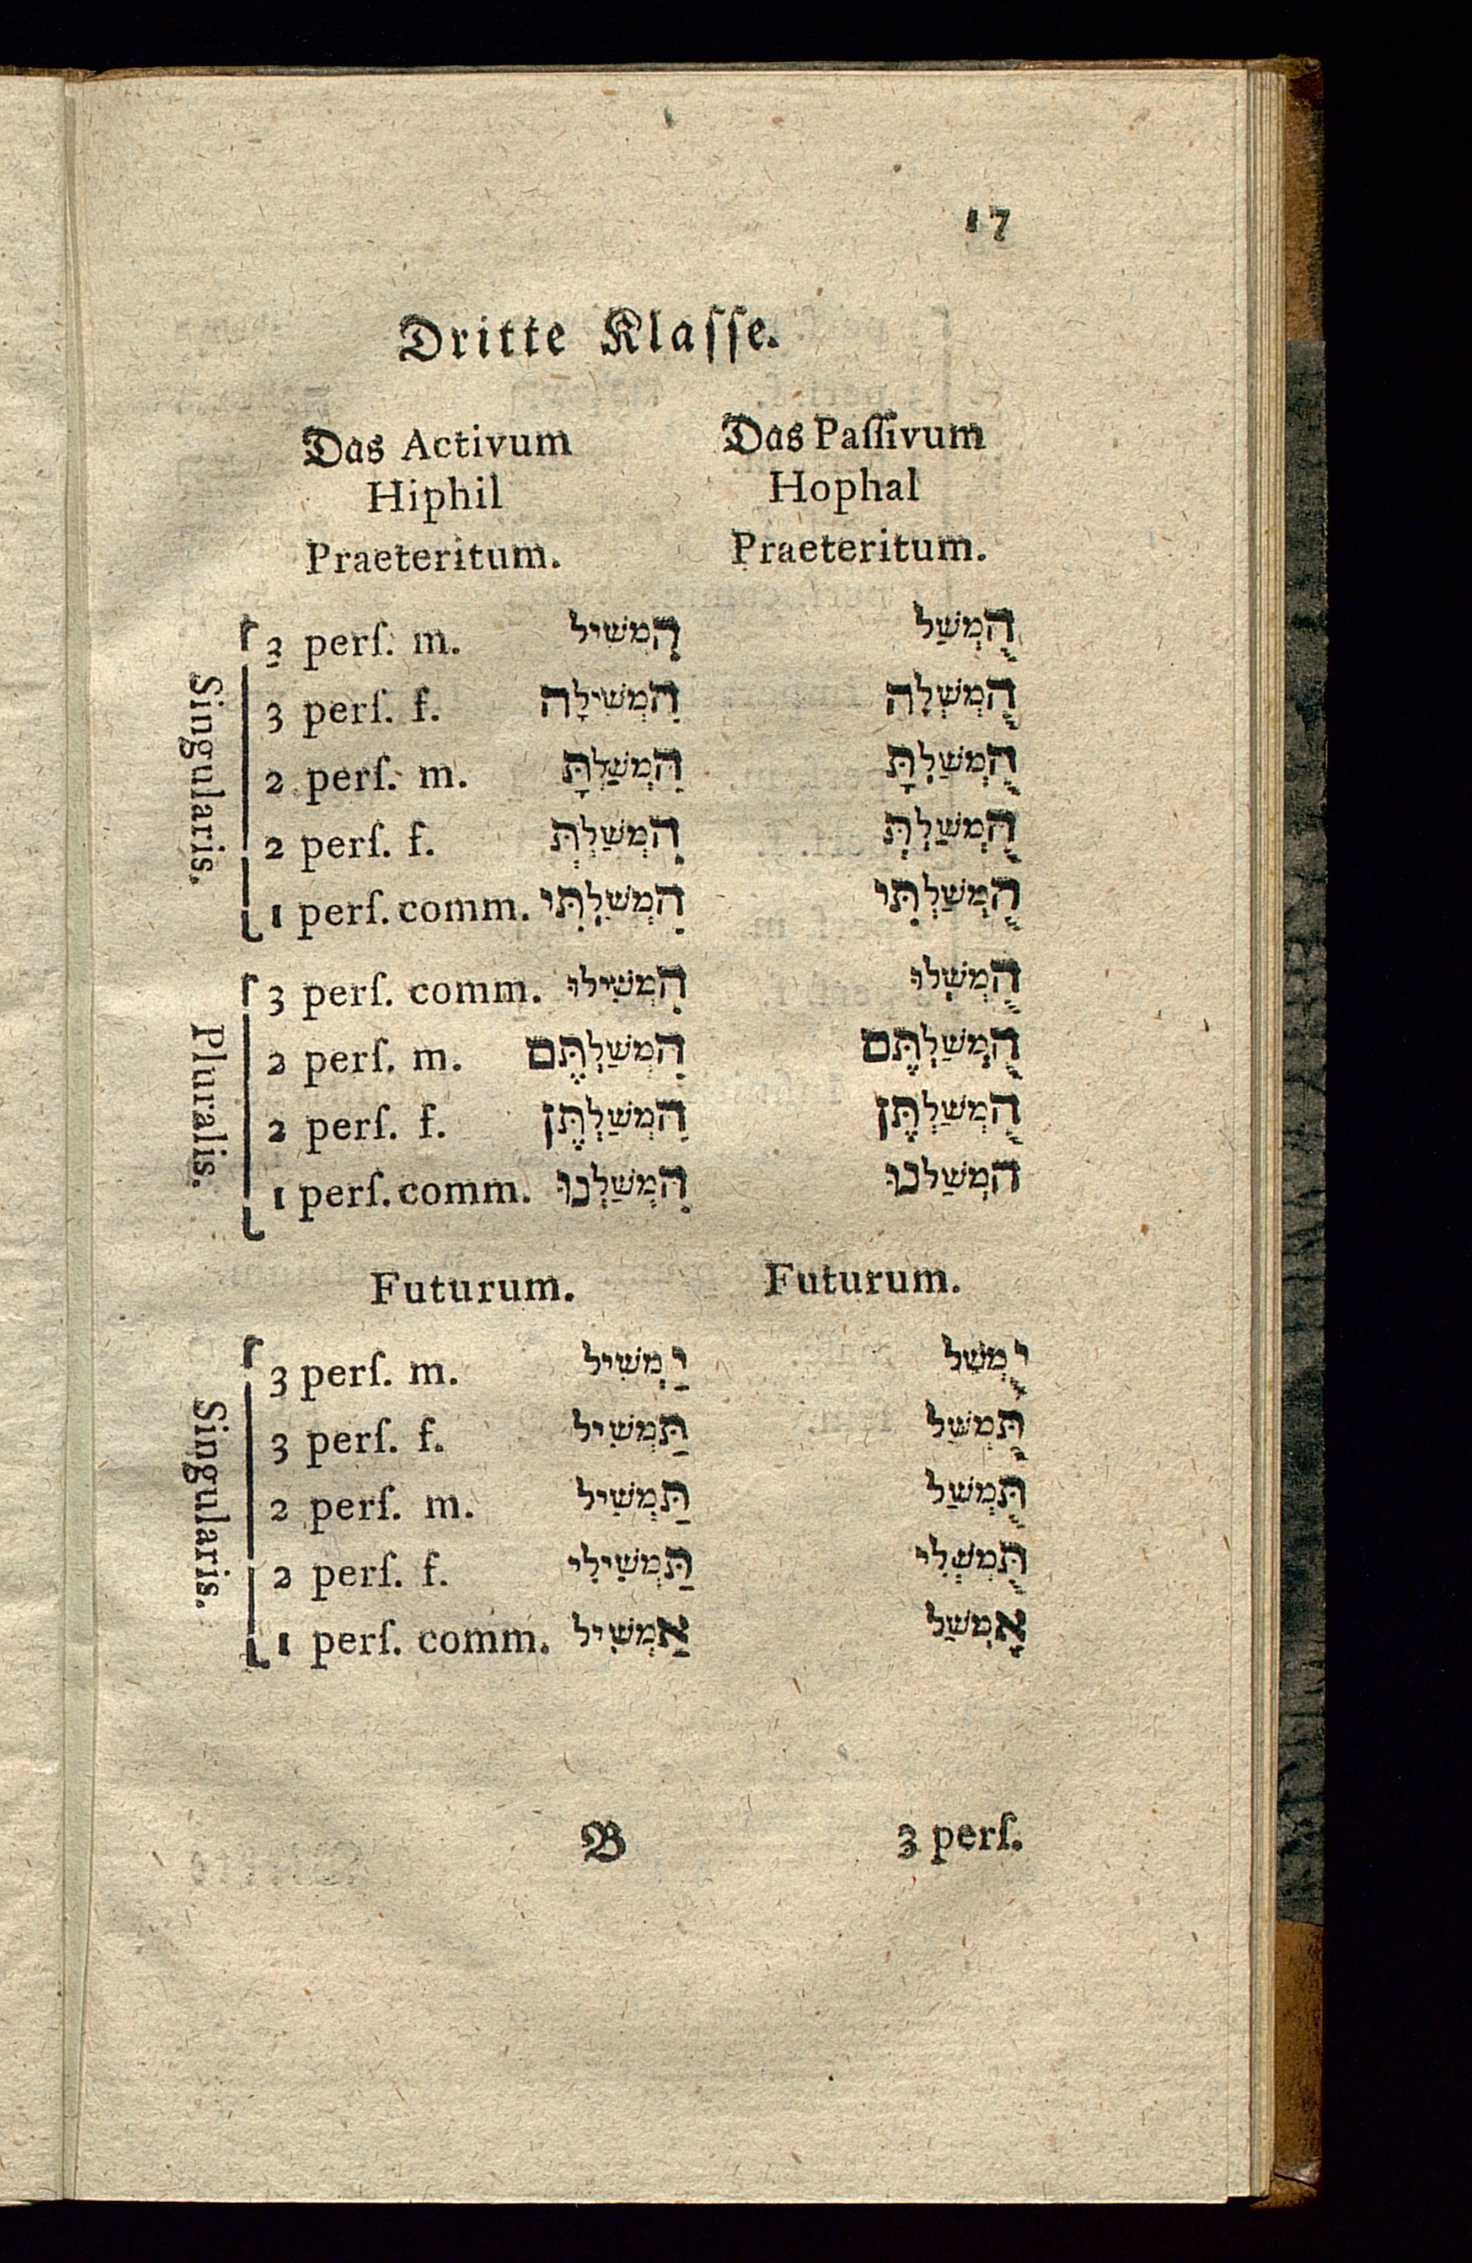 17
Dritte Klaſſe.
Das Activum Das Paſſivum
Hiphil Hophal
Praeteritum. Praeteritum.
Singularis.
3 perſ. m. הִמשׁיל הָמְשַׁל
3 perſ. f. הִמְשׁילָה הָמְשְׁלָה
2 perſ. m. הִמְשַׁלְתָּ הָמְשַׁלְתָּ
2 perſ. f. הִמְשַׁלְתְּ הָמְשַׁלְתְּ
1 perſ. comm. הִמְשַׁלְתִּי הָמְשַׁלְתִּי
Pluralis.
3 perſ. comm. הִמְשִׁילוּ הָמְשְׁלוּ
2 perſ. m. הִמְשַׁלְתֶּם הָמְשַׁלְתֶּם
2 perſ. f. הִמְשַׁלְתֶּן הָמְשַׁלְתֶּן
1 perſ. comm. הִמְשַׁלְנוּ המְשַׁלנוּ
Futurum. Futurum.
Singularis.
3 perſ. m. יַמְשִׁיל יָמְשַׁל
3 perſ. f. תַּמְשִׁיל תָּמְשַׁל
2 perſ. m. תַּמְשִׁיל תָּמְשַׁל
2 perſ. f. תַּמְשִׁילִי תָּמְשְׁלִי
1 perſ. comm. אַמְשִׁיל אָמְשַׁל
B 3 perſ.